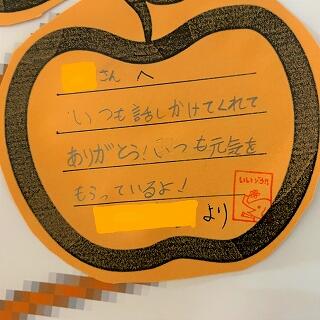 さんへ
いつも話しかけてくれて
ありがとう！いつも元気を
もらっているよ！
より